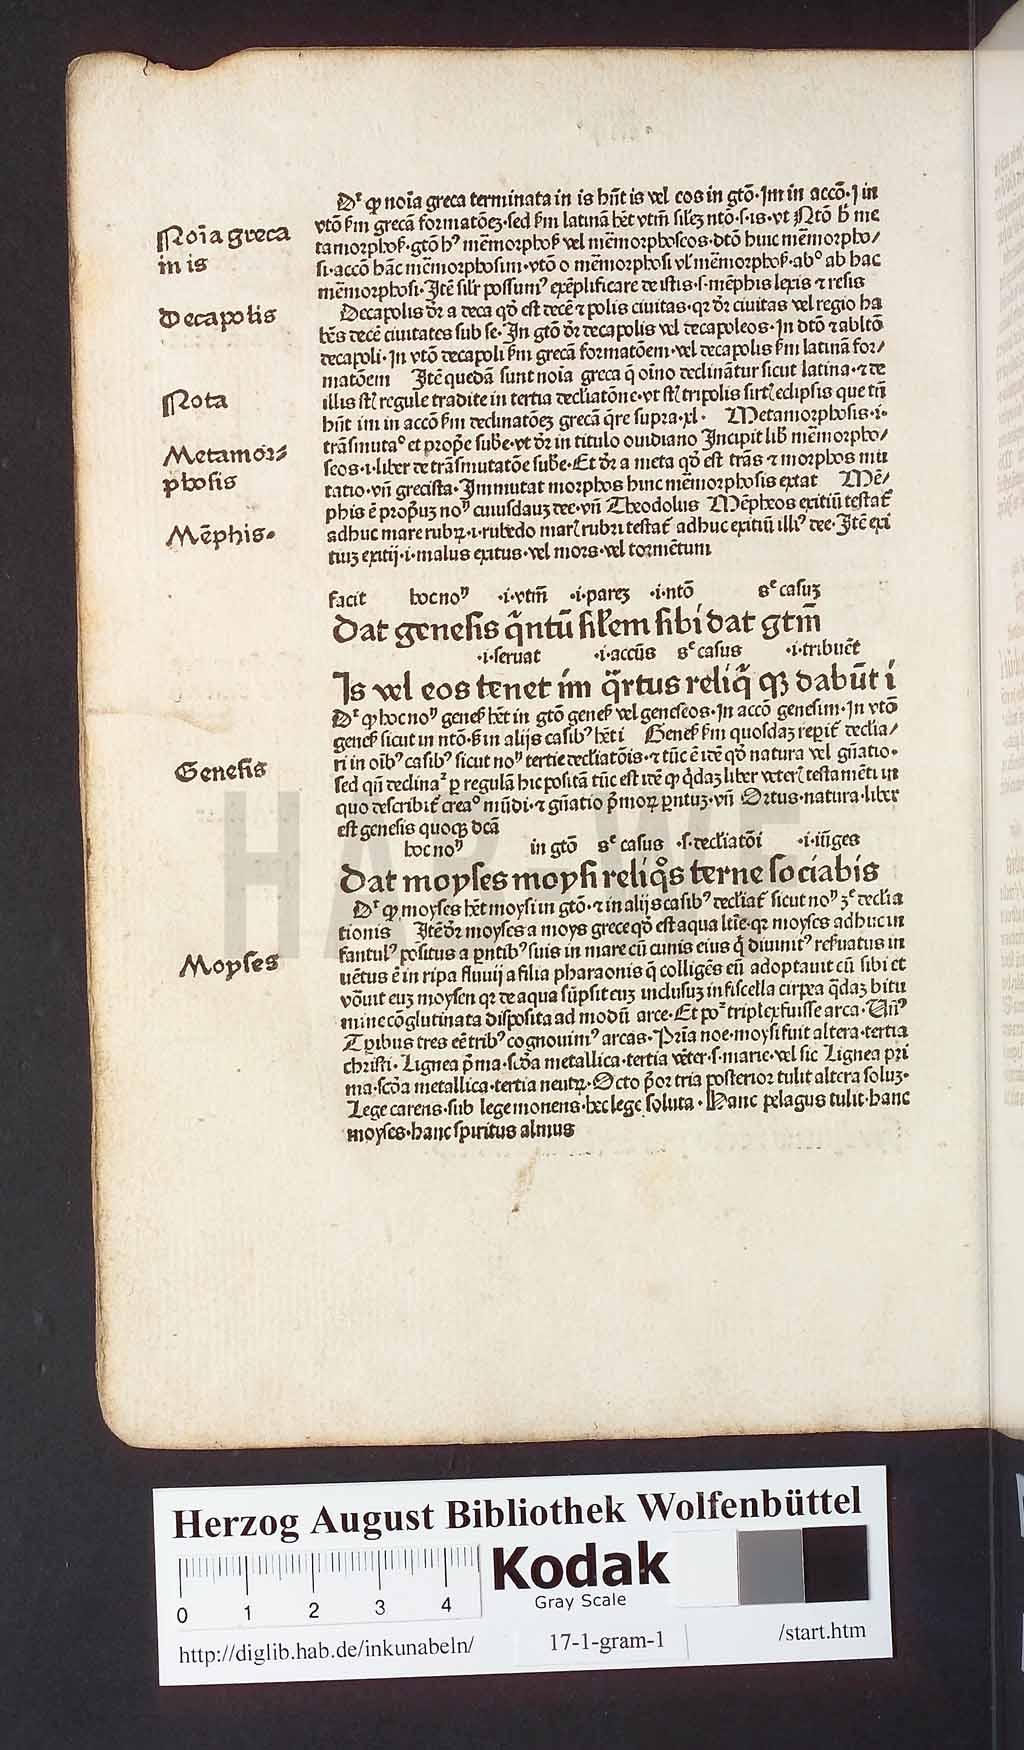 Noīa greca
in is
Decapolis
Nota
Metamor⸗
phosis
Mēphis.
Genesis
Moyses
Dr̄ ꝙ noīa greca terminata in is hn̄t is vel eos in gtō. Im in accō. I in
vtō ẜm grecā formatōeꝫ. sed ẜm latinā hēt vtm̄ silēꝫ ntō. s. is. vt Ntō h̄ me
tamorphoẜ. gtō hꝰ mēmorphoẜ vel mēmorphoseos. dtō huic mēmorpho/
si. accō hāc mēmorphosim. vtō o mēmorphosi vl̓ mēmorphoẜ. abº ab hac
mēmorphosi. Itē silr̄ possumꝰ exēplificare de istis. s. mēphis lexis ⁊ resis
Decapolis dr̄ a deca qḋ est decē ⁊ polis ciuitas. qr dr̄ ciuitas vel regio ha
bēs decē ciuitates sub se. In gtō dr̄ decapolis vel decapoleos. In dtō ⁊ abltō
decapoli. In vtō decapoli ẜm grecā formatōem. vel decapolis ẜm latinā for/
matōem Itē quedā sunt noīa greca q̄ oīno declinātur sicut latina. ⁊ de
illis regule tradite in tertia decliatōne. vt tripolis eclipsis que tn̄
hn̄t im in accō ẜm declinatōeꝫ grecā q̄re supra. xl. Metamorphosis. i.
trāsmutaº et prop̄e subē. vt dr̄ in titulo ouidiano Incipit lib̄ mēmorpho/
seos. i. liber de trāsmutatōe subē. Et dr̄ a meta qḋ est trās ⁊ morphos mu
tatio. vn̄ grecista. Immutat morphos hinc mēmorphosis extat Mē/
phis ē prop̄uꝫ noⁿ cuiusdaꝫ dee. vn̄ Theodolus Mēpheos exitiū testat̄
adhuc mare rubꝝ. i. rubedo rubri testat̄ adhuc exitiū illiꝰ dee. Itē exi
tiuꝫ exitij. i. malus exitus. vel mors. vel tormētum
facit hoc noⁿ .i. vtm̄ .i. pareꝫ .i. ntō sᵉ casuꝫ
Dat genesis q̄ntū sil̓em sibi dat gtm̄
.i. seruat .i. accūs sᵉ casus .i. tribuēt
Is vel eos tenet im q̄rtus reliq̄ qꝫ dabūt i
Dr̄ ꝙ hoc noⁿ geneẜ hēt in gtō geneẜ vel geneseos. In accō genesim. In vtō
geneẜ sicut in ntō. ẜ in alijs casibꝰ hēt i Geneẜ ẜm quosdaꝫ reꝑit̄ declia/
ri in oībꝰ casibꝰ sicut noⁿ tertie decliatōis. ⁊ tūc ē idē qḋ natura vel gn̄atio.
sed qn̄ declinaᷣ ꝑ regulā hic positā tūc est idē ꝙ q̇daꝫ liber veteris testamēti in
quo describit̄ creaº mūdi. ⁊ gn̄atio p̄moꝝ ꝑntuꝫ. vn̄ Ortus. natura. liber
est genesis quoqꝫ dcā
hoc noⁿ in gtō sᵉ casus .s. decliatōi .i. iūges
Dat moyses moysi reliq̊s terne sociabis
Dr̄ ꝙ moyses hēt moysi in gtō. ⁊ in alijs casibꝰ decliat̄ sicut noⁿ 3ᵉ declia
tionis Itē dr̄ moyses a moys grece qḋ est aqua ltīe. qr moyses adhuc in
fantulꝰ positus a ꝑntibꝰ suis in mare cū cunis eius q̇ diuinitꝰ reẜuatus in
uētus ē in ripa fluuij a filia pharaonis q̄ colligēs eū adoptauit cū sibi et
vōuit euꝫ moysen qr de aqua sūpsit euꝫ inclusuꝫ in fiscella cirpea q̄daꝫ bitu
mine cōglutinata disposita ad modū arce. Et poᷣ triplex fuisse arca. Vn̄ꝰ
Tꝑibus tres eē tribꝰ cognouimꝰ arcas. Pri̅a noe. moysi fuit altera. tertia
christi. Lignea p̄ma. scḋa metallica. tertia vēter. s. marie. vel sic Lignea pri
ma. scḋa metallica. tertia neutꝝ. Octo p̄or tria posterior tulit altera soluꝫ.
Lege carens. sub lege monens. hec lege soluta. Hanc pelagus tulit. hanc
moyses. hanc spiritus almus
HAB WF
Herzog August Bibliothek Wolfenbüttel
0 1 2 3 4
Kodak
Gray Scale
http://diglib.hab.de/inkunabeln/
17-1-gram-1
/start.htm